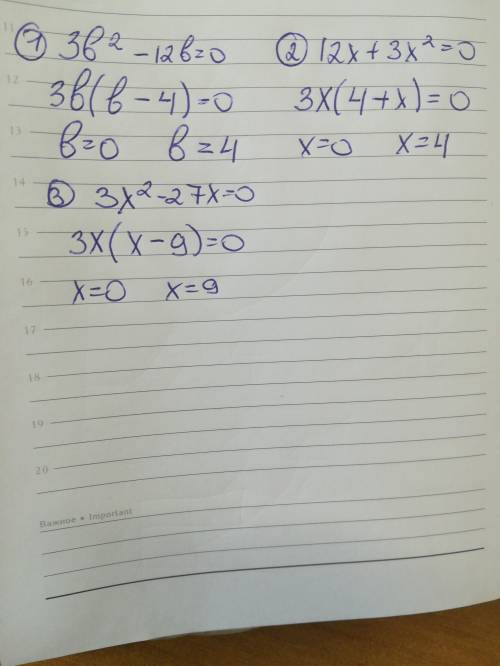 11
① 3b² - 12b = 0
② 12x + 3x² = 0
12
3b(b - 4) = 0
3x(4 + x) = 0
13
b = 0 b = 4
x = 0 x = 4
14
③ 3x² - 27x = 0
15
3x(x - 9) = 0
16
x = 0 x = 9
17
18
19
20
Важное • Important